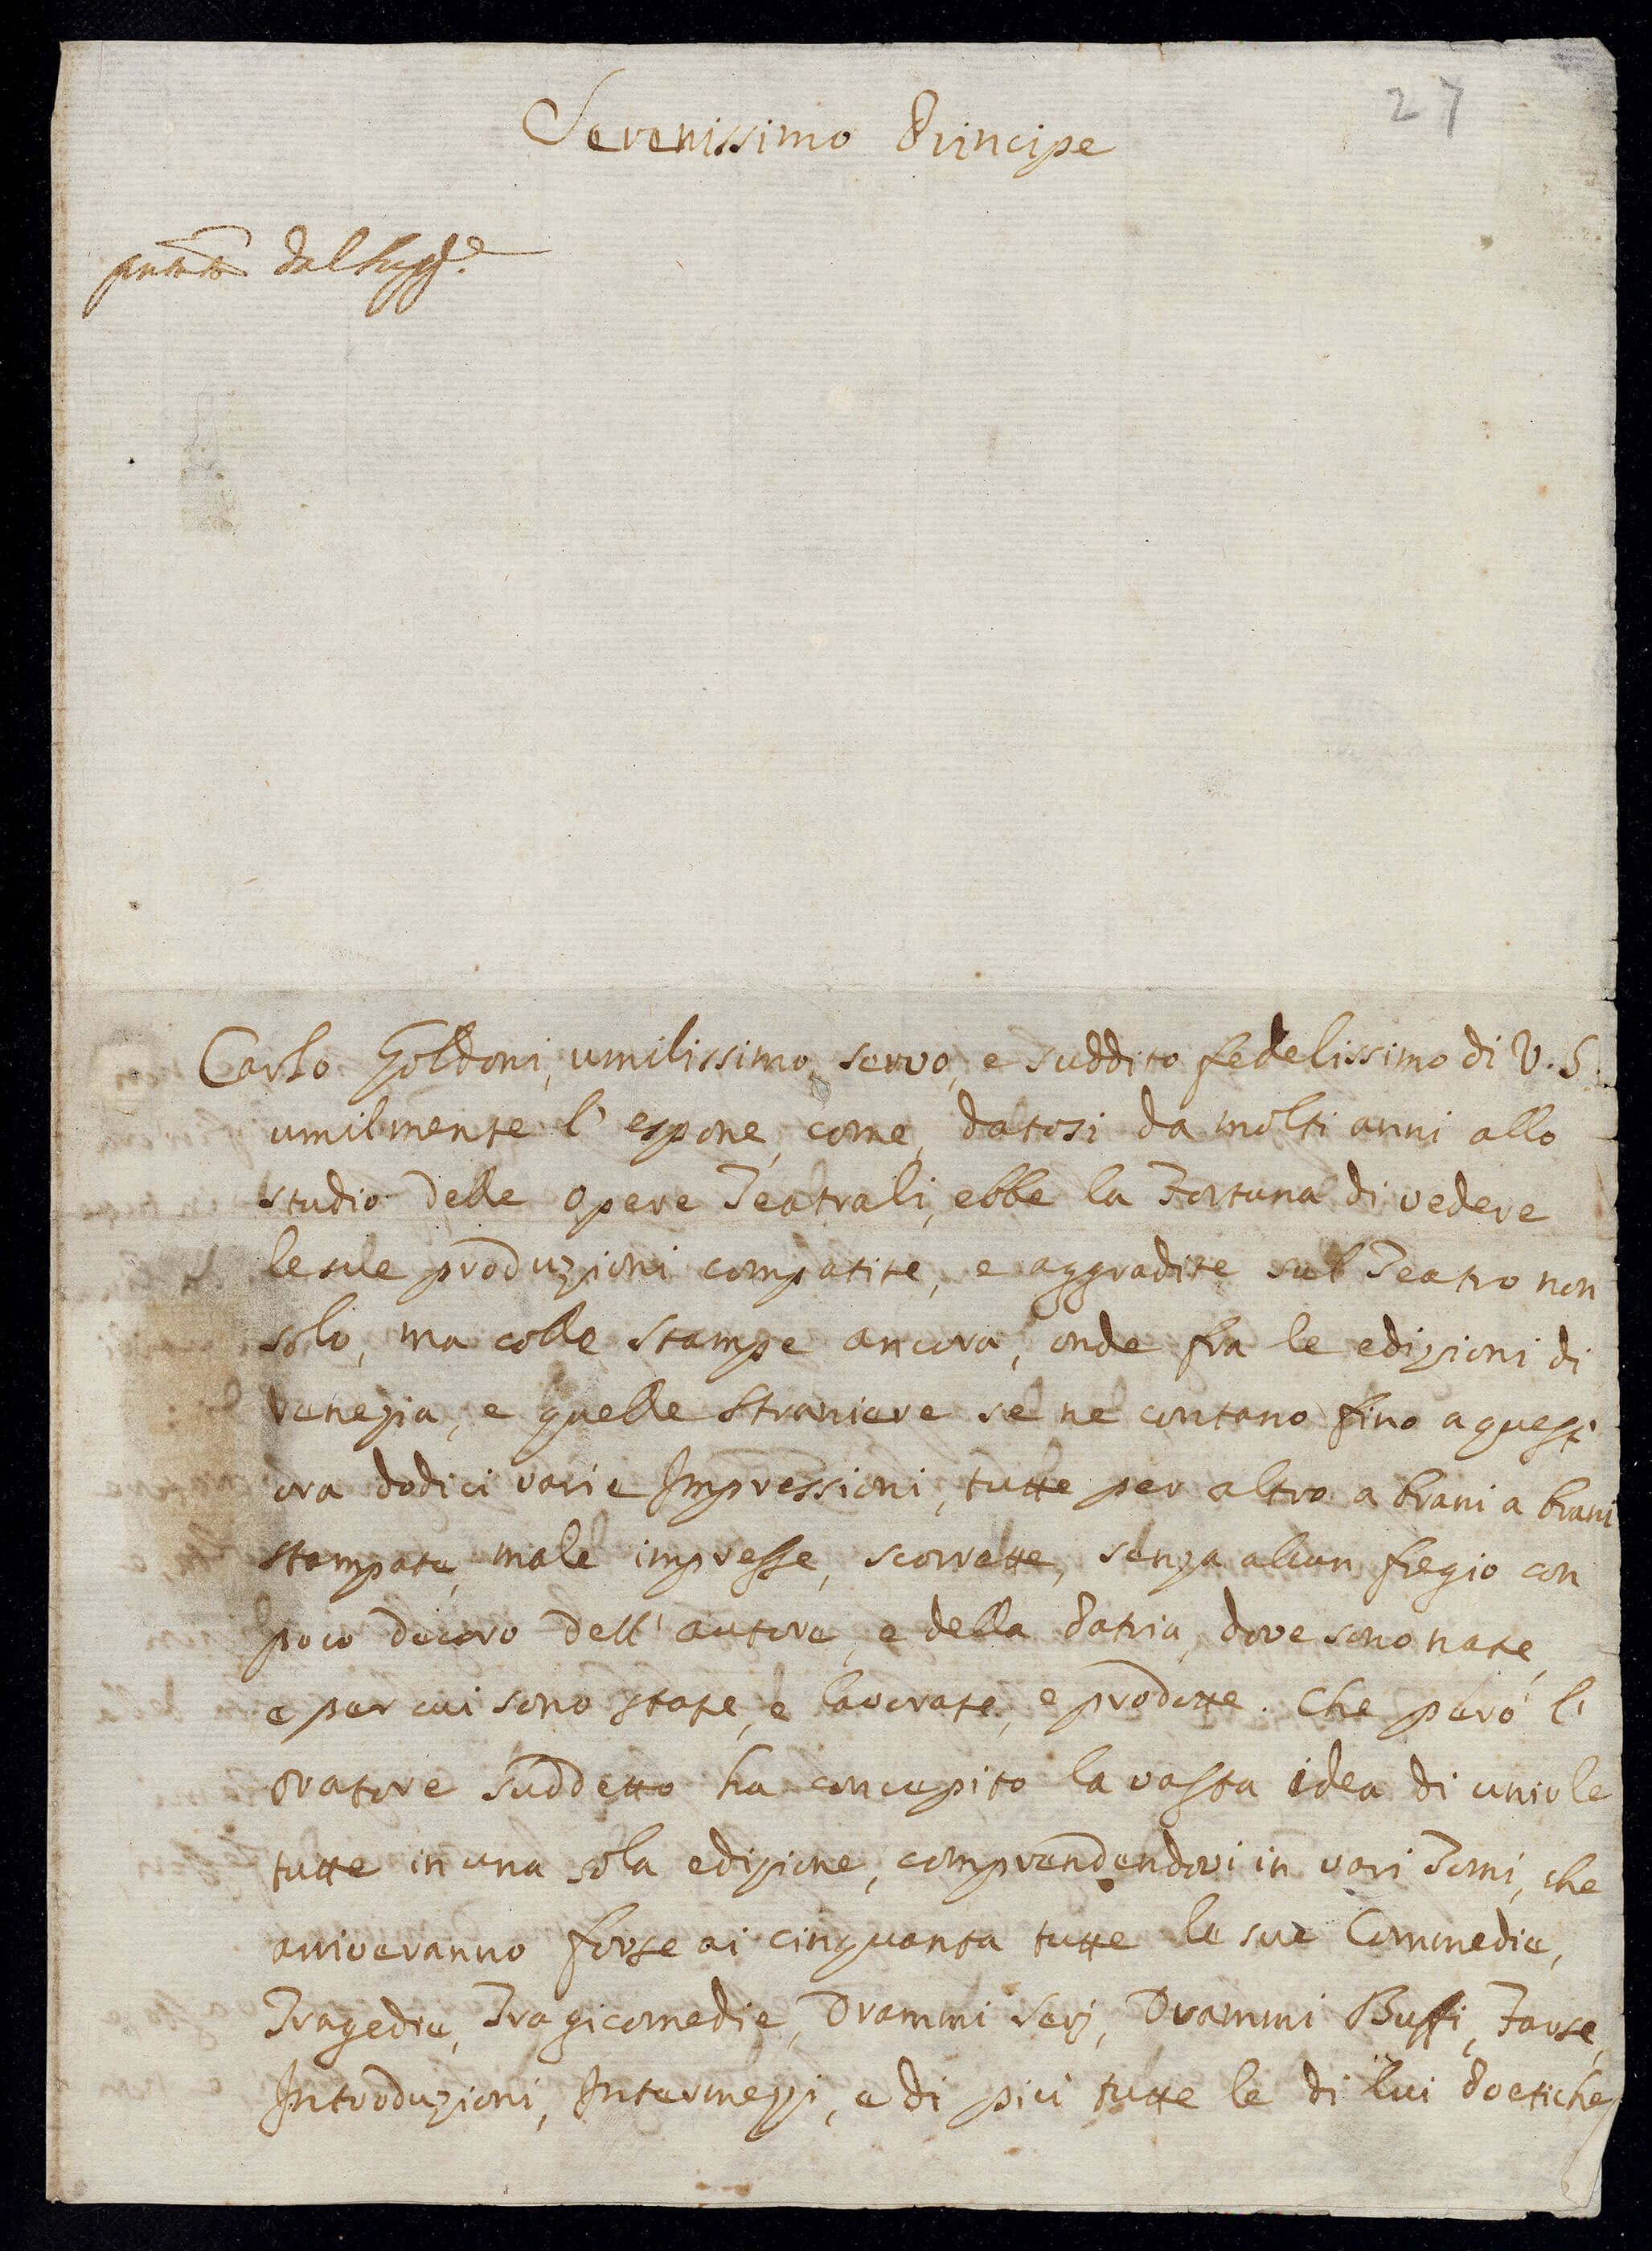 27
Serenissimo Principe
dal Supp.e
Carlo Goldoni, umilissimo servo, e suddito fedelissimo di V. S.
umilmente l' espone, come, datosi da molti anni allo
studio delle Opere Teatrali, ebbe la Fortuna di vedere
le sue produzioni compatite, e aggradite sul Teatro non
solo, ma colle stampe ancora, onde fra le edizioni di
Venezia, e quelle straniere se ne contano fino a quest'
ora dodici varie Impressioni, tutte per altro a brani a brani
stampate, male impresse, scorrette, senza alcun fregio con
poco decoro dell' autore, e della Patria, dove sono nate,
e per cui sono state, e lavorate, e prodotte. Che però l'
Oratore suddetto ha concepito la vasta idea di unirle
tutte in una sola edizione, comprendendovi in vari Tomi, che
arriveranno forse ai cinquanta tutte le sue Commedie,
Tragedie, Tragicomedie, Drammi Serj, Drammi Buffi, Farse,
Introduzioni, Intermezzi, e di più tutte le di lui Poetiche